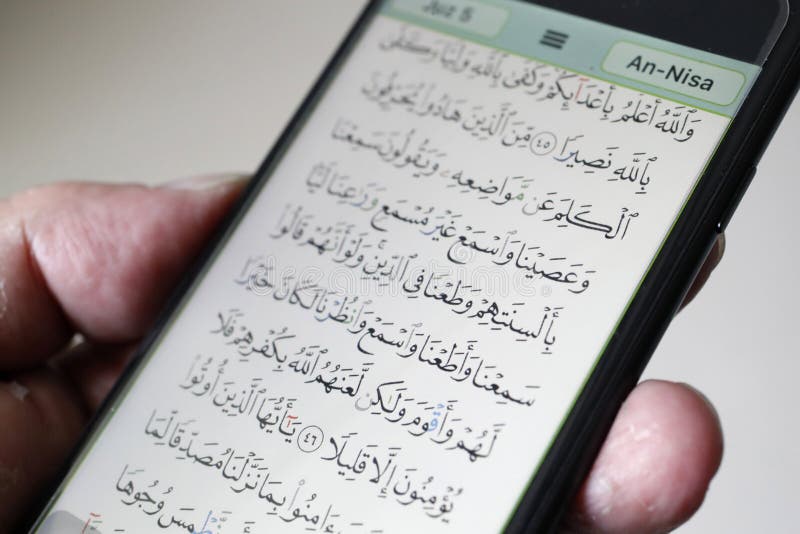 Juz 5
An-Nisa
وَٱللَّهُ أَعْلَمُ بِأَعْدَآئِكُمْ وَكَفَىٰ بِٱللَّهِ وَلِيًّا وَكَفَىٰ
بِٱللَّهِ نَصِيرًا ٤٥ مِّنَ ٱلَّذِينَ هَادُوا۟ يُحَرِّفُونَ
ٱلْكَلِمَ عَن مَّوَاضِعِهِۦ وَيَقُولُونَ سَمِعْنَا
وَعَصَيْنَا وَٱسْمَعْ غَيْرَ مُسْمَعٍ وَرَٰعِنَا لَيًّۢا
بِأَلْسِنَتِهِمْ وَطَعْنًا فِى ٱلدِّينِ وَلَوْ أَنَّهُمْ قَالُوا۟
سَمِعْنَا وَأَطَعْنَا وَٱسْمَعْ وَٱنظُرْنَا لَكَانَ خَيْرًا
لَّهُمْ وَأَقْوَمَ وَلَٰكِن لَّعَنَهُمُ ٱللَّهُ بِكُفْرِهِمْ فَلَا
يُؤْمِنُونَ إِلَّا قَلِيلًا ٤٦ يَٰٓأَيُّهَا ٱلَّذِينَ أُوتُوا۟
ءَامِنُوا۟ بِمَا نَزَّلْنَا مُصَدِّقًا لِّمَا
نَّطْمِسَ وُجُوهًا